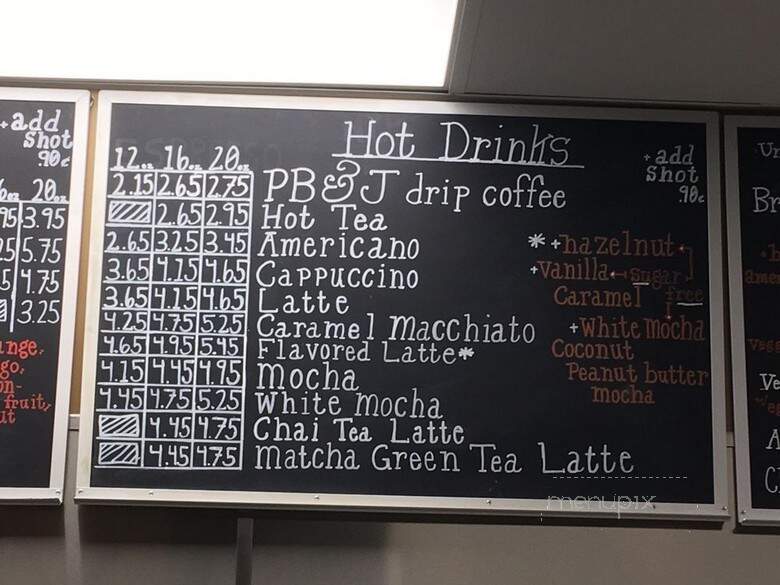 +add
shot
.90¢
20oz
3.95
5.75
4.75
3.25
fruit,
Hot Drinks
12oz 16oz 20oz
+add
shot
.90¢
2.15 2.65 2.75 PB&J drip coffee
2.65 2.95 Hot Tea
2.65 3.25 3.45 Americano
3.65 4.15 4.65 Cappuccino
3.65 4.15 4.65 Latte
4.25 4.75 5.25 Caramel Macchiato
4.65 4.95 5.45 Flavored Latte*
4.15 4.45 4.95 Mocha
4.45 4.75 5.25 White Mocha
4.45 4.75 Chai Tea Latte
4.45 4.75 Matcha Green Tea Latte
*+hazelnut
+vanilla sugar
Caramel free
+White Mocha
Coconut
Peanut butter
mocha
menupix